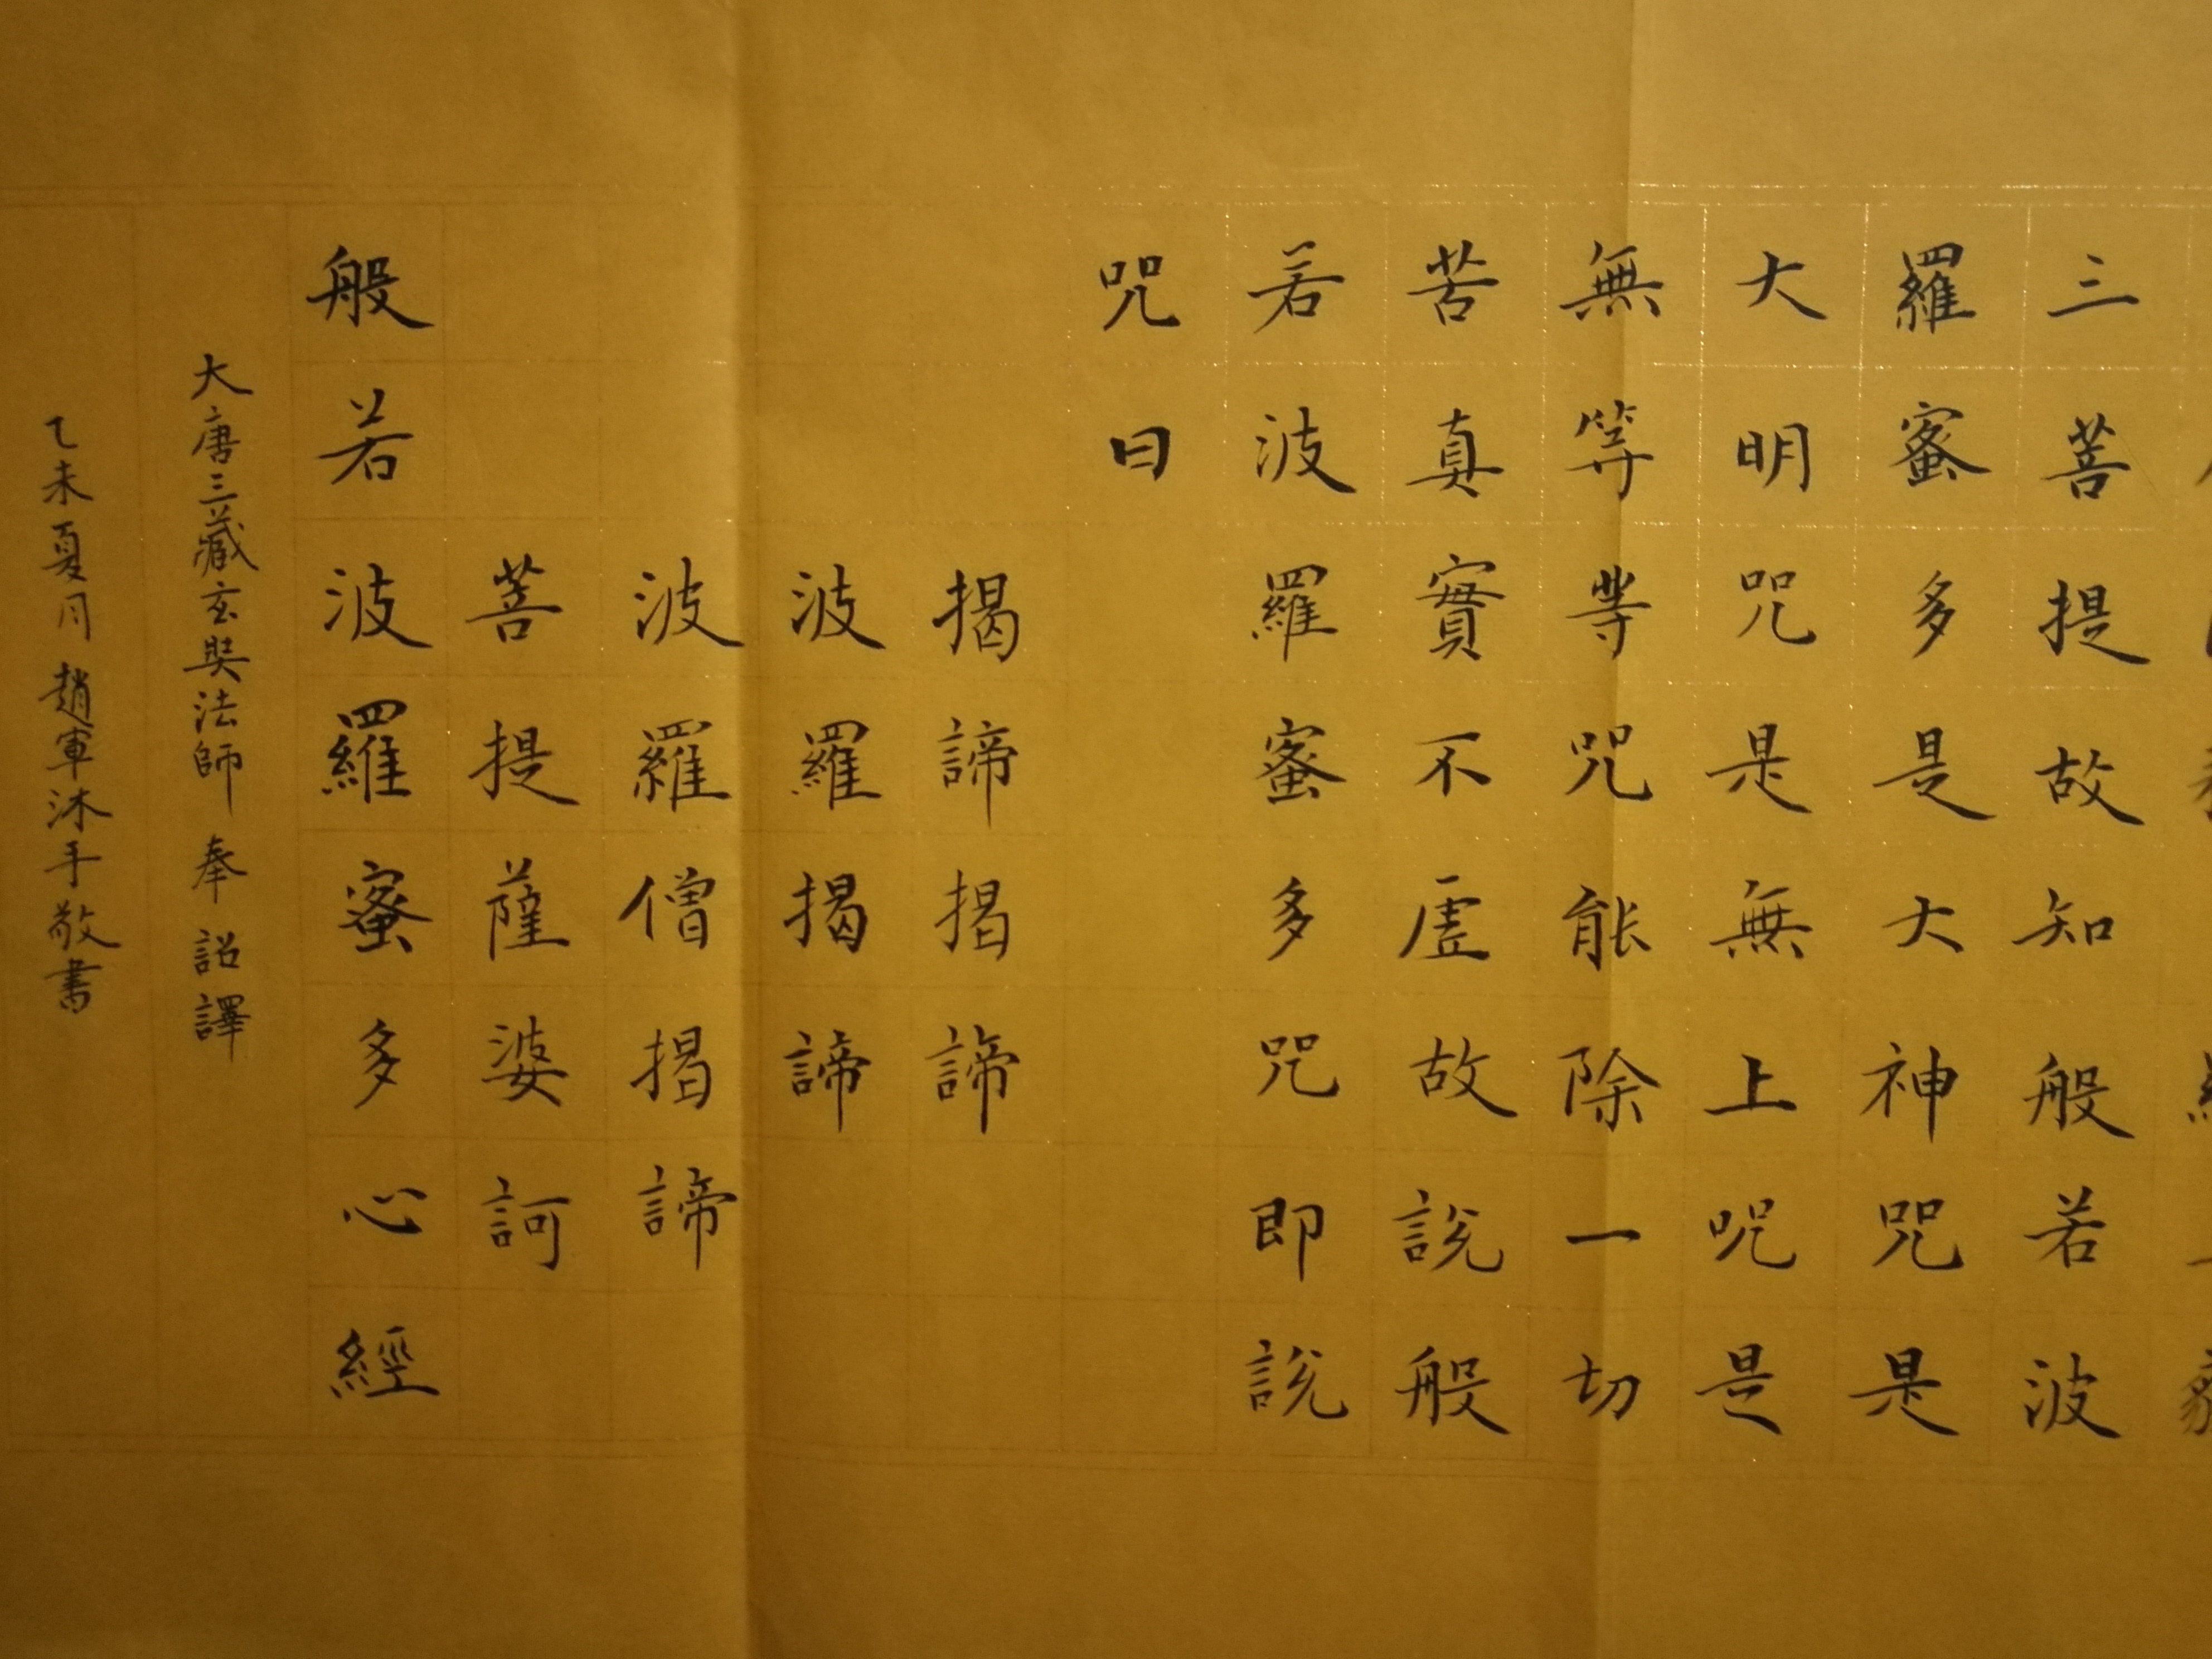 三菩提故知般若波
羅蜜多是大神咒是
大明咒是無上咒是
無等等咒能除一切
苦真實不虛故說般
若波羅蜜多咒即說
咒曰
揭諦揭諦
波羅揭諦
波羅僧揭諦
菩提薩婆訶
般若波羅蜜多心經
大唐三藏玄奘法師奉詔譯
乙未夏月趙軍沐手敬書